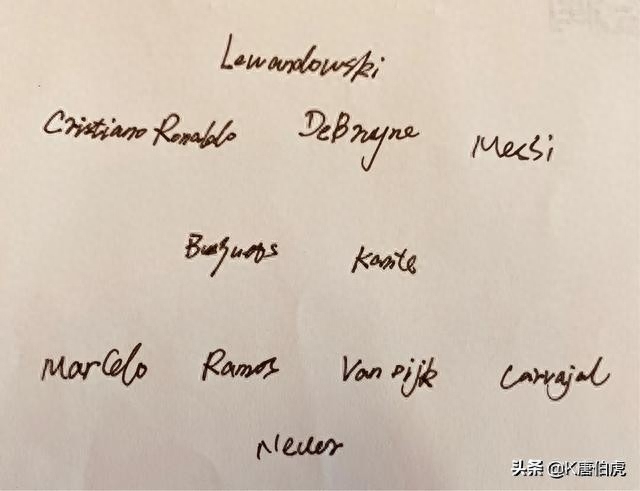 Lewandowski
Cristiano Ronaldo DeBruyne Messi
Busquets Kante
Marcelo Ramos Van Dijk Carvajal
Neuer
头条 @K唐伯虎